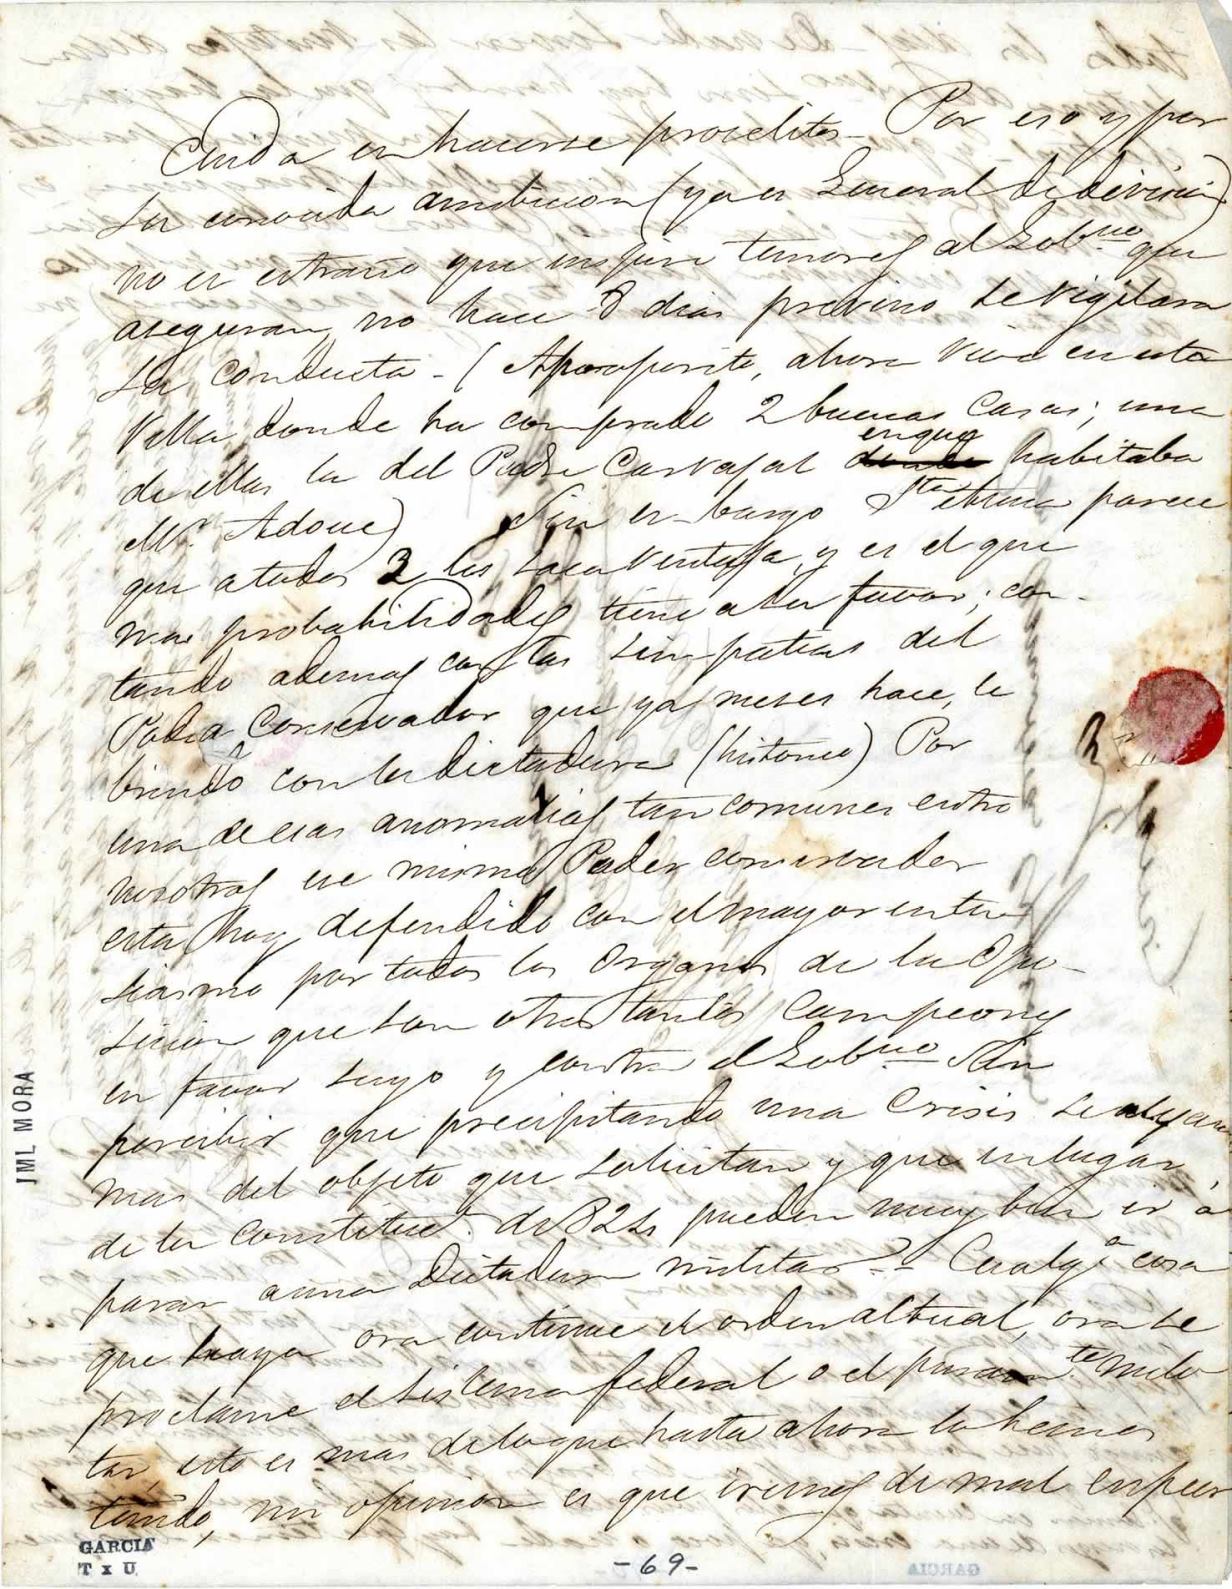 Cuida en hacerse proselitos - Por eso y por
su conocida ambicion (ya es General de division)
no es estraño que inspire temores al Gob.no que
aseguran, no hace 8 dias previno se vigilara
su conducta - (Aproposito, ahora vive en esta
Villa donde ha comprado 2 buenas casas; una
de ellas la del Padre Carvajal donde en que habitaba
Mr. Adoue) Sin em-bargo Sta etnna parece
que a todos 3 les saca ventaja, y es el que
mas probabilidades tiene a su favor; con-
tando ademas con las simpatias del
Poder Conservador que ya meses hace, le
brindó con la dictadura (historico) Por
una de esas anomalias tan comunes entre
nosotros ese mismo Poder conservador
esta hoy defendido con el mayor entu
siasmo por todos los organos de la Opo-
sicion que son otros tantos Campeones
en favor suyo y contra el Gob.no Sin
percibir que precipitando una Crisis se alejan
mas del objeto que solicitan y que en lugar
de la constituc.n de 824 pueden muy bien ir á
parar a una Dictadura militar?- Cualq.a cosa
que haya ora continue el orden altual, ora se
proclame el sistema federal o el puram.te mili
tar, esto es mas de lo que hasta ahora lo hemos
tenido, mi opinion es que iremos de mal en peor
JML MORA
GARCIA
T x U
-69-
GARCIA